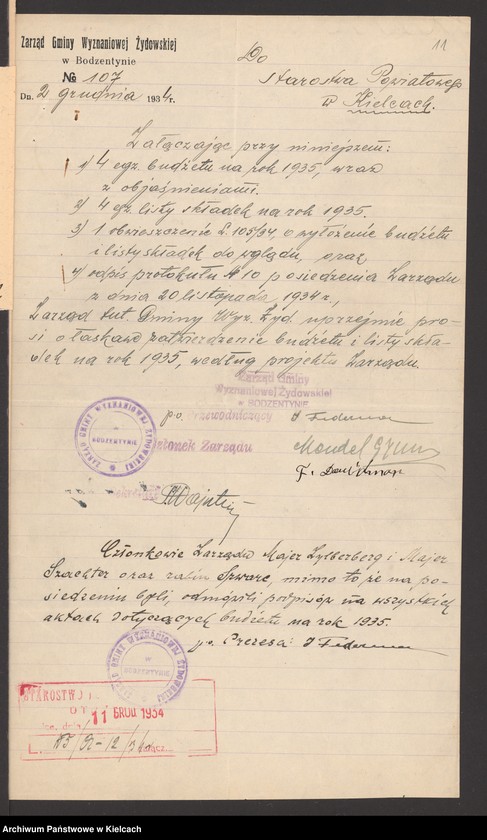 11
Zarząd Gminy Wyznaniowej Żydowskiej
w Bodzentynie
№ 107
Dn. 2 grudnia 1934 r.
Do
Starostwa Powiatowego
w Kielcach.
Załączając przy niniejszem:
1) 4 egz. budżetu na rok 1935, wraz
z objaśnieniami.
2) 4 egz. listy składek na rok 1935.
3) 1 obwieszczenie L. 105/34, o wyłożenie budżetu
i listy składek do wglądu, oraz
4) odpis protokułu № 10 posiedzenia Zarządu
z dnia 20 listopada 1934 r.,
Zarząd tut. Gminy Wyz. Żyd. uprzejmie pro-
si o łaskawe zatwierdzenie budżetu i listy skła-
dek na rok 1935, według projektu Zarządu.
Zarząd Gminy
Wyznaniowej Żydowskiej
w BODZENTYNIE
p.o. Przewodniczący
Członek Zarządu
ZARZĄD GMINY WYZNANIOWEJ ŻYDOWSKIEJ
w
BODZENTYNIE
Członkowie Zarządu Majer Zylberberg i Majer
Szachter oraz rabin Szwarc, mimo to, że na po-
siedzeniu byli, odmówili podpisów na wszystkich
aktach dotyczących budżetu na rok 1935.
p.o. Prezesa:
ZARZĄD GMINY WYZNANIOWEJ ŻYDOWSKIEJ
w
BODZENTYNIE
STAROSTWO
11 GRUD 1934
L.
Archiwum Państwowe w Kielcach